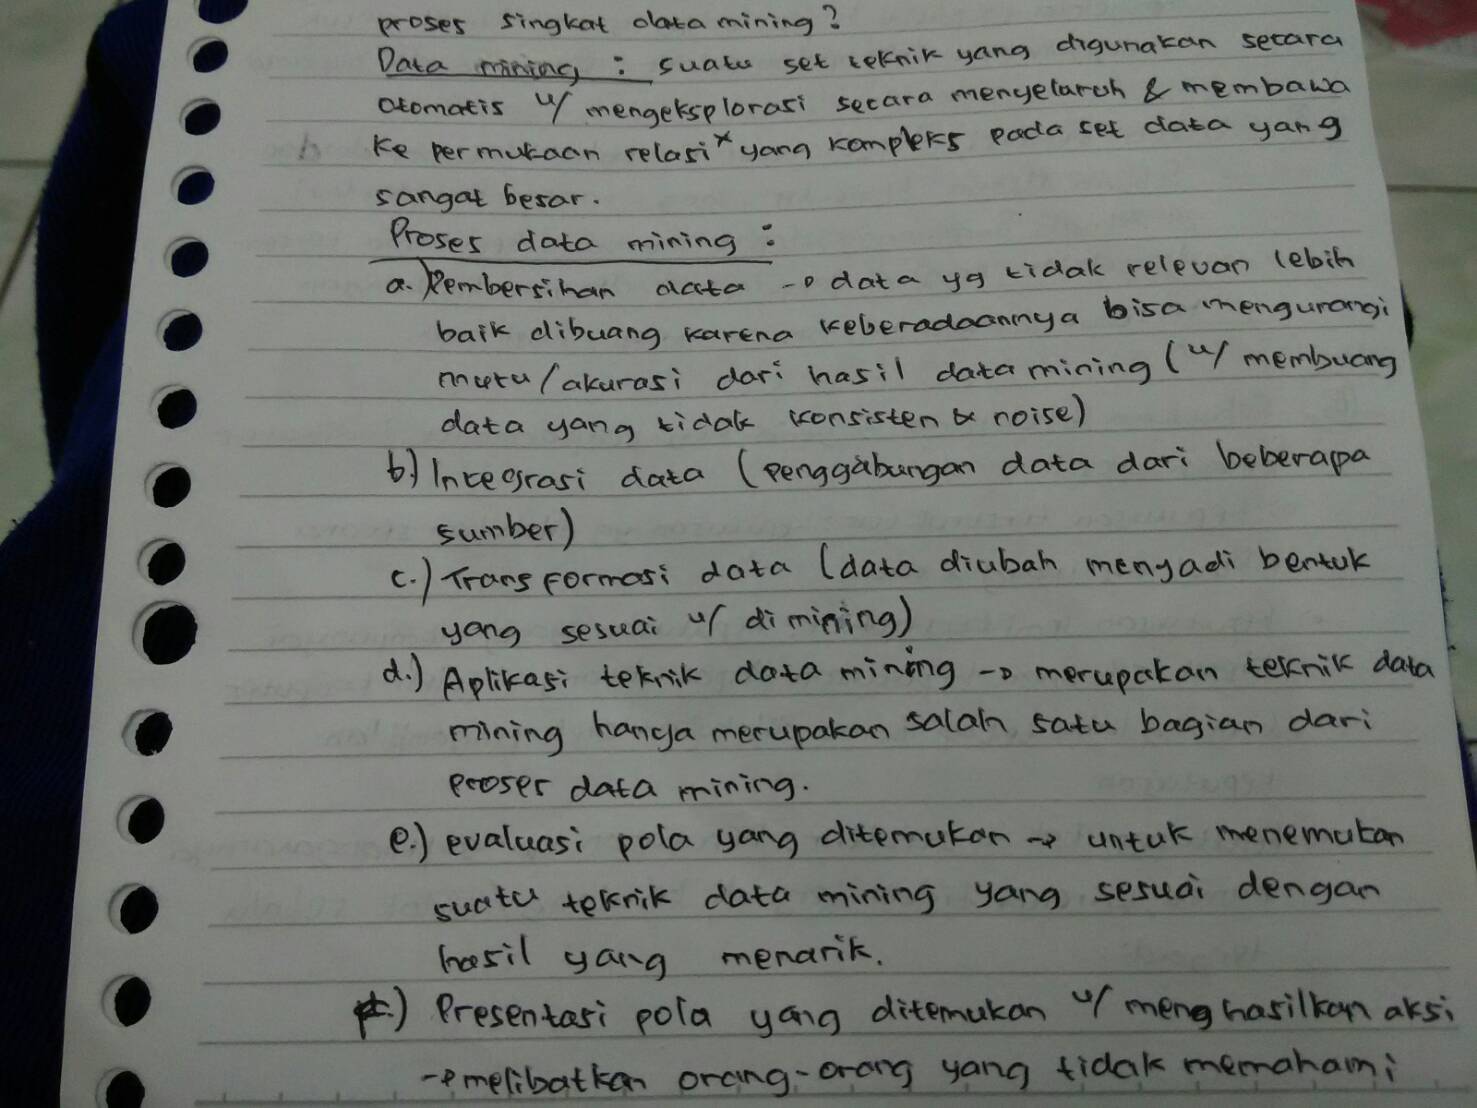 proses singkat data mining?
Data mining : suatu set teknik yang digunakan secara
otomatis u/ mengeksplorasi secara menyeluruh & membawa
ke permukaan relasi" yang kompleks pada set data yang
sangat besar.
Proses data mining :
a.) Pembersihan data → data yg tidak relevan lebih
baik dibuang karena keberadaannya bisa mengurangi
mutu/akurasi dari hasil data mining (u/ membuang
data yang tidak konsisten & noise)
b.) Integrasi data (penggabungan data dari beberapa
sumber)
c.) Transformasi data (data diubah menyadi bentuk
yang sesuai u/ di mining)
d.) Aplikasi teknik data mining → merupakan teknik data
mining hanya merupakan salah satu bagian dari
proses data mining.
e.) evaluasi pola yang ditemukan → untuk menemukan
suatu teknik data mining yang sesuai dengan
hasil yang menarik.
f.) Presentasi pola yang ditemukan u/ menghasilkan aksi
→ melibatkan orang-orang yang tidak memahami